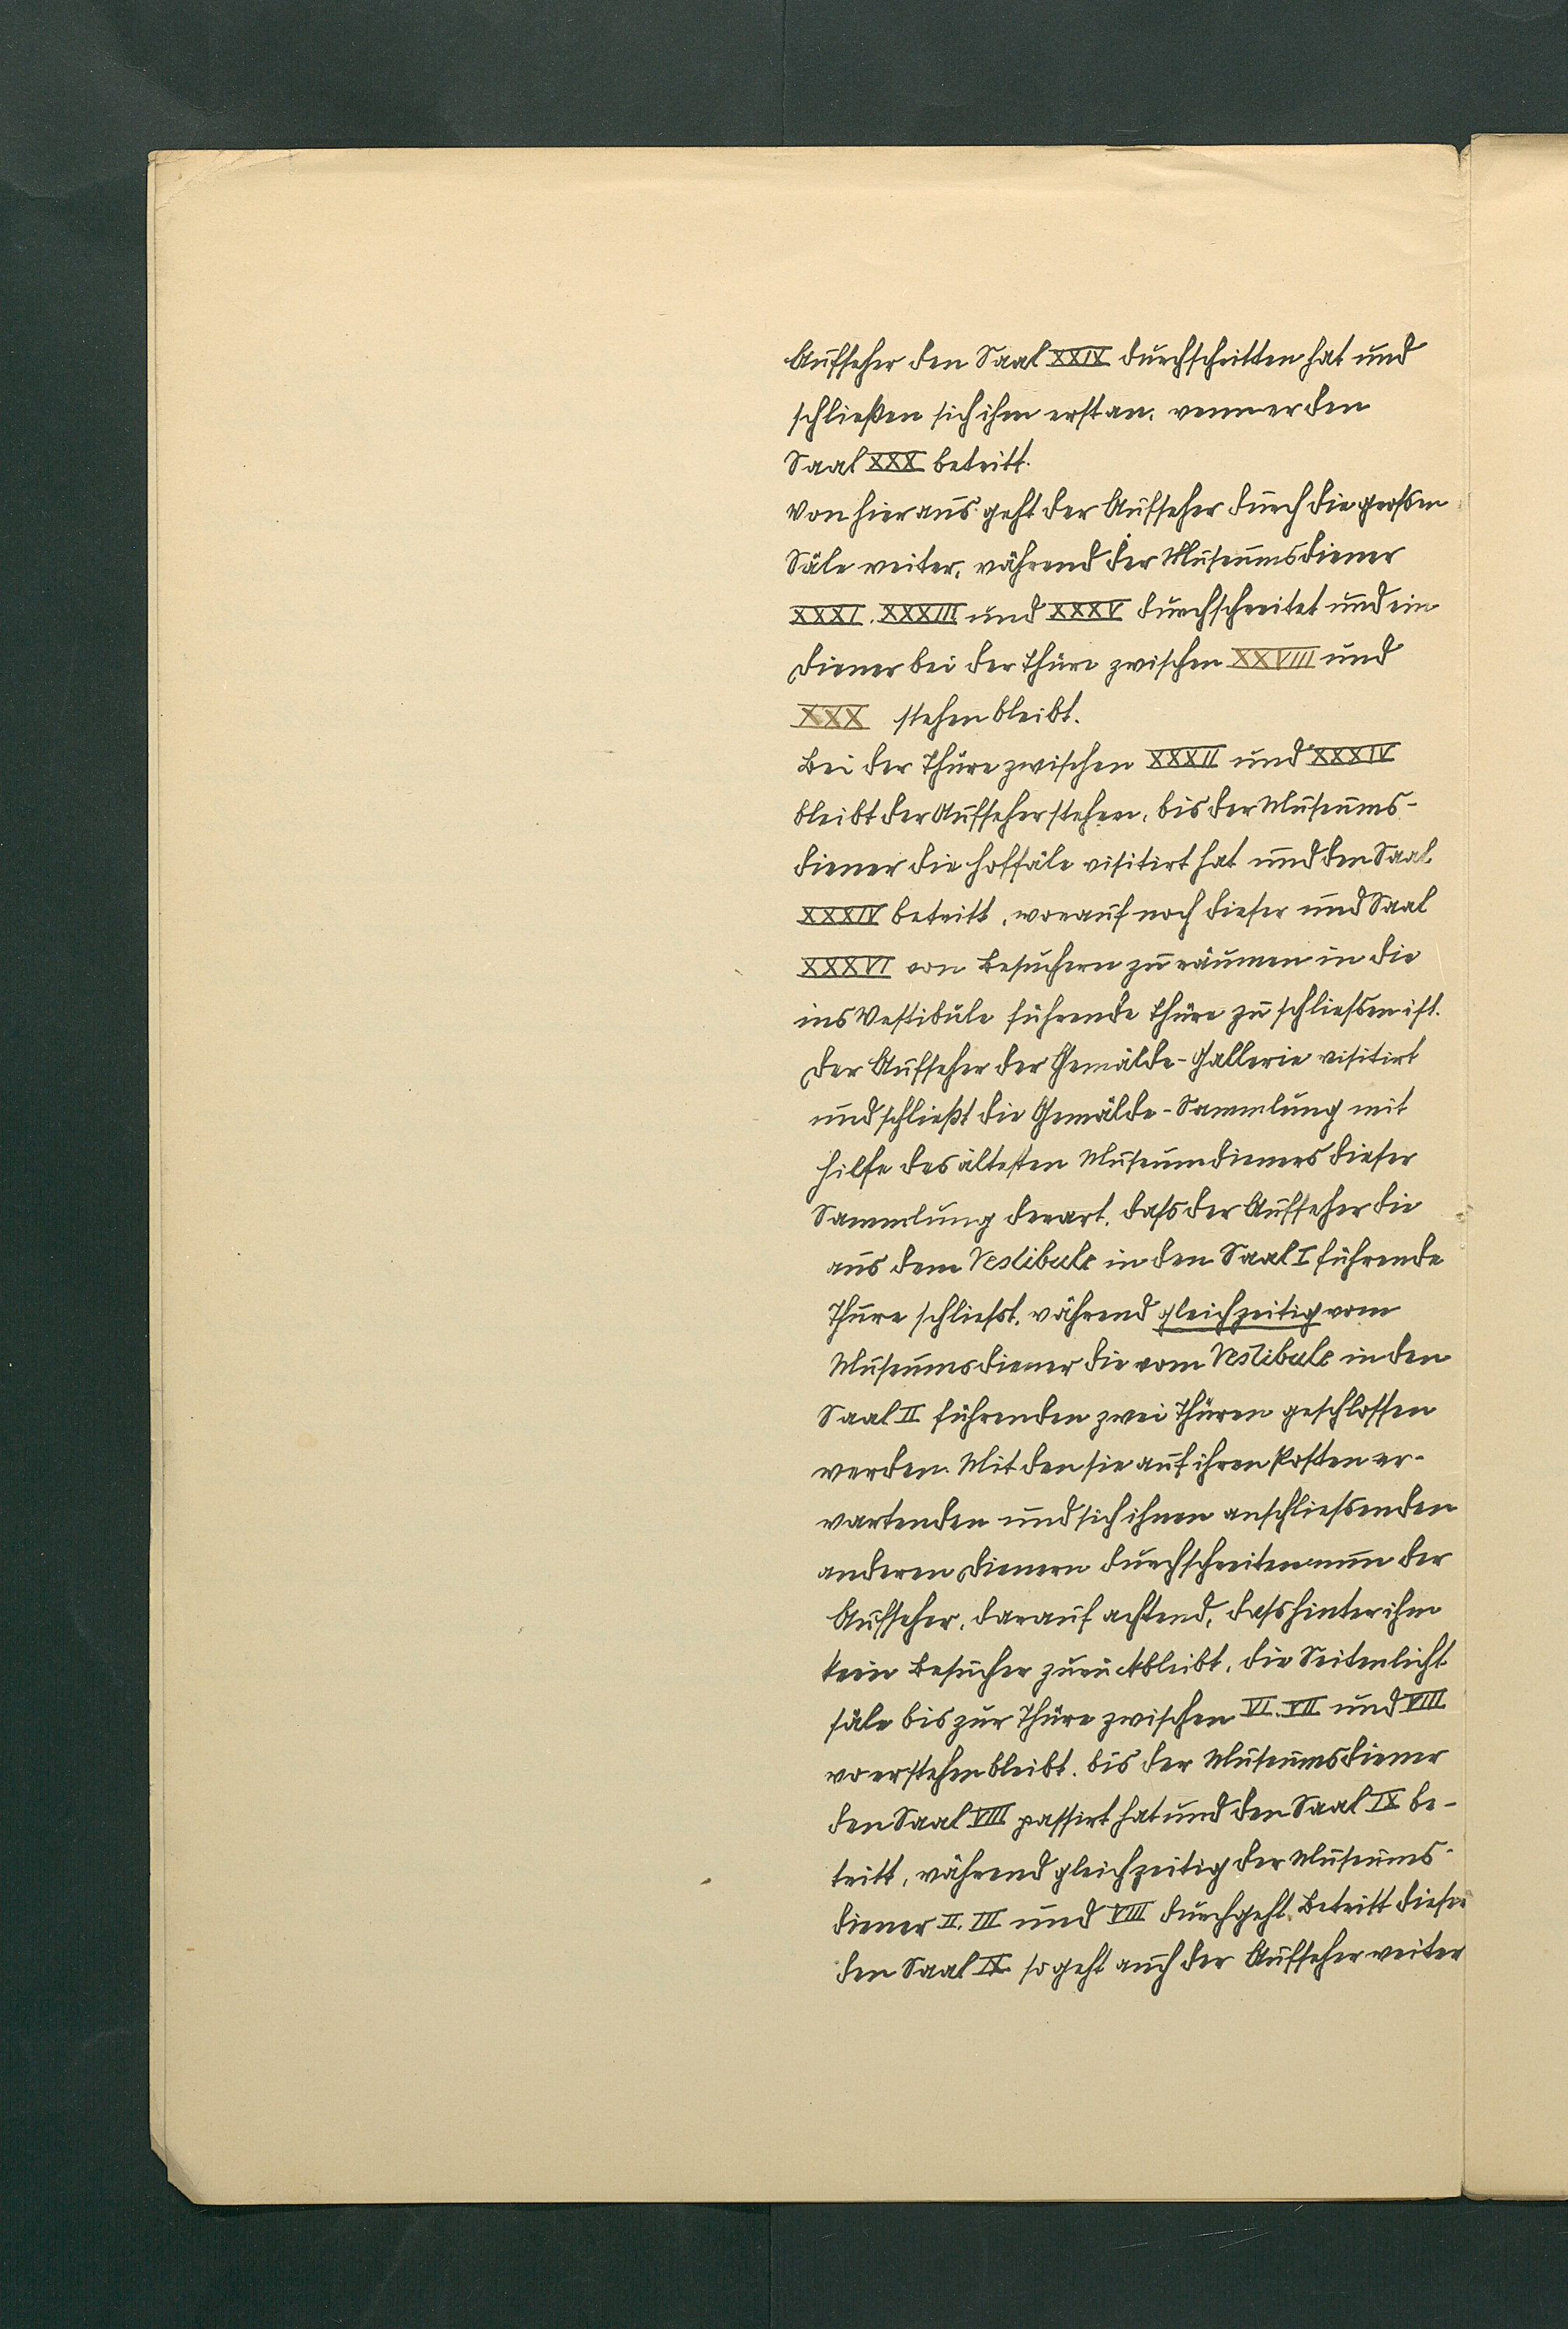 Aufseher den Saal XXIX durchschritten hat und
schließen sich ihm erst an, wenn er den
Saal XXX betritt.
Von hier aus geht der Aufseher durch die grossen
Säle weiter, während der Museumsdiener
XXXI. XXXIII und XXXV durchschreitet und ein
Diener bei der Thüre zwischen XXVIII und
XXX stehen bleibt.
Bei der Thüre zwischen XXXII und XXXIV
bleibt der Aufseher stehen, bis der Museums-
diener die Hofsäle visitirt hat und den Saal
XXXIV betritt, worauf noch dieser und Saal
XXXVI von Besuchern zu räumen in die
ins Vestibule führende Thüre zu schliessen ist.
Der Aufseher der Gemälde-Gallerie visitirt
und schließt die Gemälde-Sammlung mit
Hilfe des ältesten Museumdieners dieser
Sammlung derart, dass der Aufseher die
aus dem Vestibule in den Saal I führende
Thüre schliesst, während gleichzeitig vom
Museumsdiener die vom Vestibule in den
Saal II führenden zwei Thüren geschlossen
werden. Mit den sie auf ihren Posten er-
wartenden und sich ihnen anschliessenden
anderen Dienern durchschreiten nun der
Aufseher, darauf achtend, dass hinter ihm
kein Besucher zurückbleibt, die Seitenlicht
säle bis zur Thüre zwischen VI. VII und VIII
wo er stehen bleibt, bis der Museumsdiener
den Saal VIII passirt hat und den Saal IX be-
tritt, während gleichzeitig der Museums-
diener II. III und VIII durchgeht. Betritt dieser
den Saal IX so geht auch der Aufseher weiter